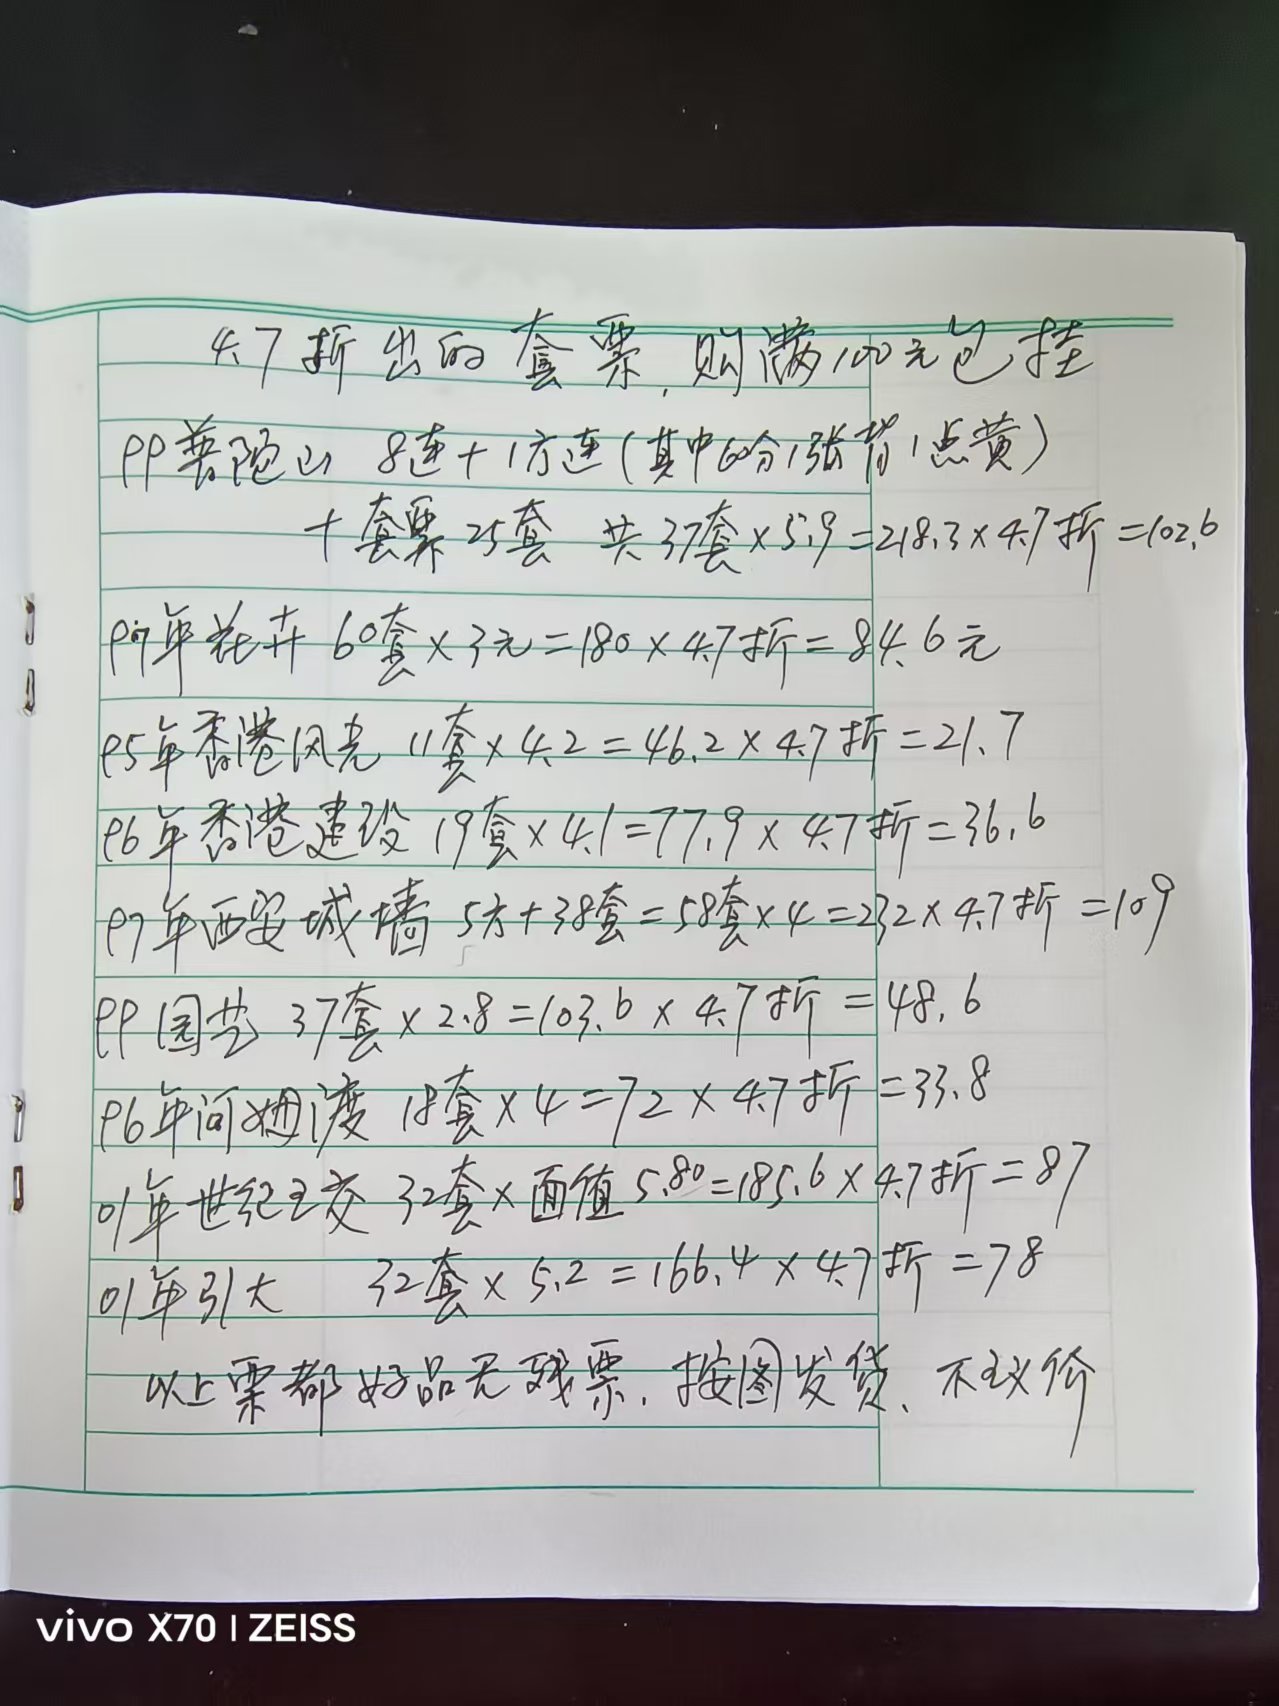 4.7折出的套票,购满100元包挂
99普陀山 8连+1方连(其中60分1张背1点黄)
+套票25套 共37套×5.9=218.3×4.7折=102.6
97年花卉 60套×3元=180×4.7折=84.6元
95年香港风光 11套×4.2=46.2×4.7折=21.7
96年香港建设 19套×4.1=77.9×4.7折=36.6
97年西安城墙 5方+38套=58套×4=232×4.7折=109
99园艺 37套×2.8=103.6×4.7折=48.6
96年河姆渡 18套×4=72×4.7折=33.8
01年世纪之交 32套×面值5.80=185.6×4.7折=87
01年引大 32套×5.2=166.4×4.7折=78
以上票都好品无残票.按图发货、不议价
vivo X70 | ZEISS